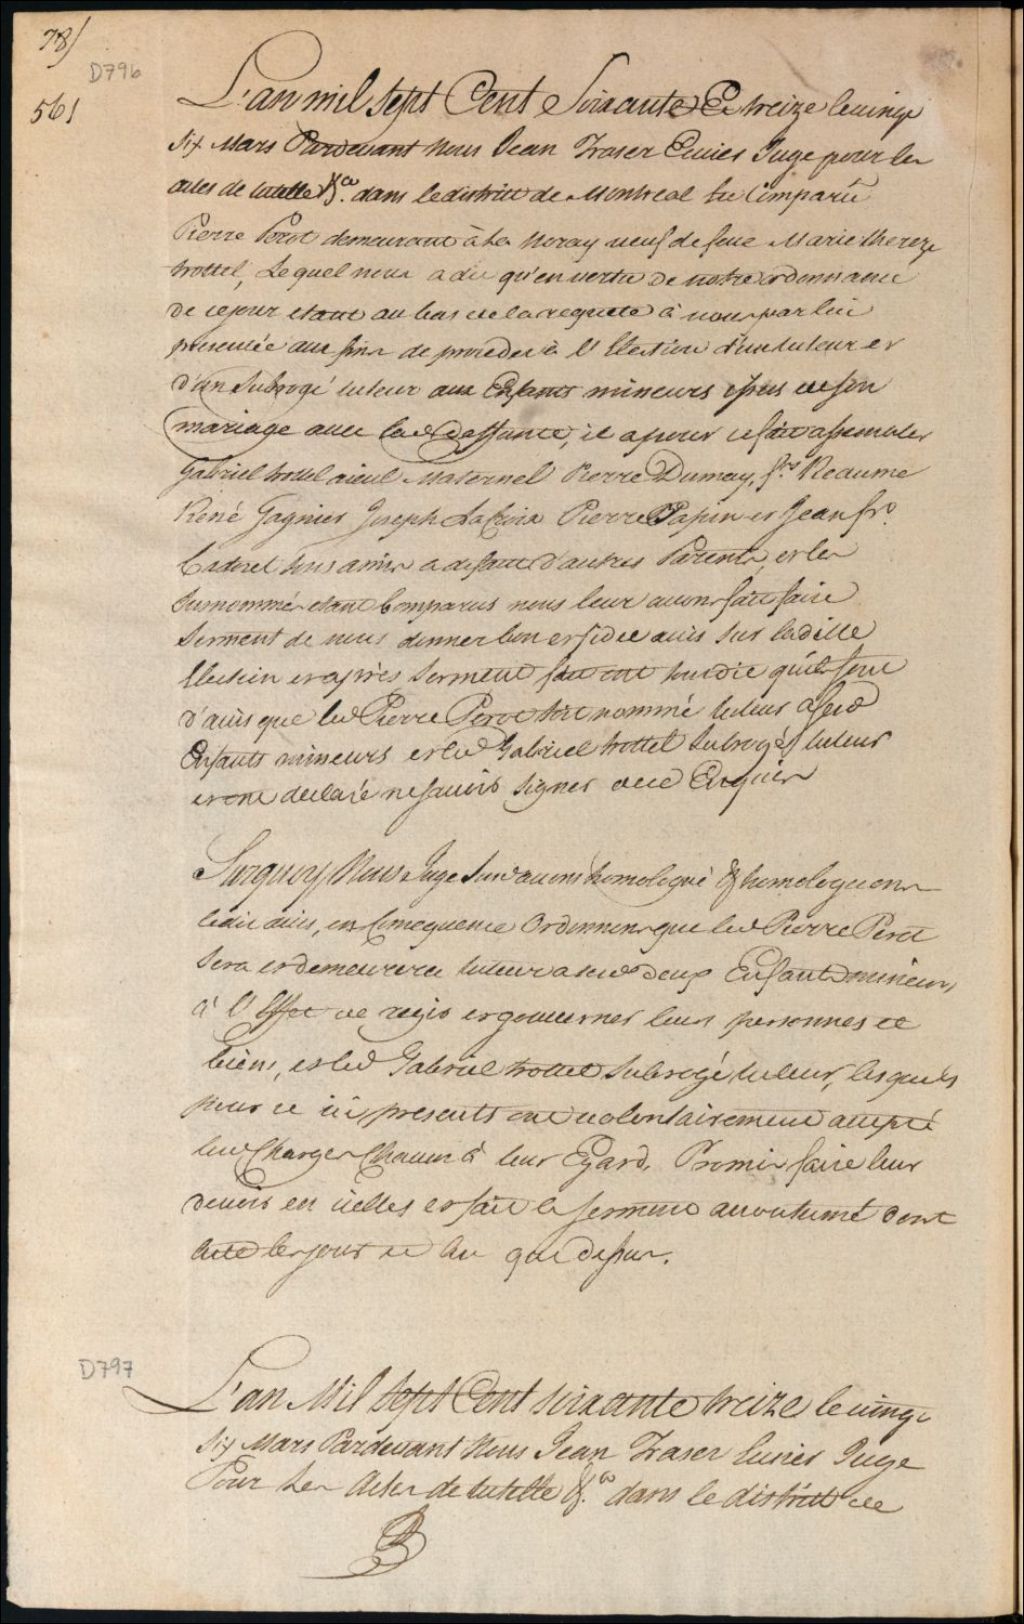 78/
D796
561
L'an mil sept Cent Soixante Et treize le vingt
Six Mars Pardevant Nous Jean Fraser Ecuier Juge pour les
actes de tutelle &ca. dans le district de Montreal Est Comparu
Pierre Perot demeurant à la Noray veuf de feue Marie thereze
trottel, Lequel nous a dit qu'en vertu de notre ordonnance
de ce jour etant au bas de la requete à nous par lui
presentée aux fins de proceder à l'Election d'un tuteur et
d'un Subrogé tuteur aux Enfants mineurs issus de son
mariage avec lad deffunte, il a pour ce fait assembler
Gabriel trottel aieul Maternel Pierre Dumay, frs. Reaume
René Gagnier Joseph LaCroix Pierre Papin et Jean frs.
Cadoret tous amis a defaut d'autres Parents, et les
Surnommés etant Comparus nous leur avons fait faire
Serment de nous donner bon et fidel avis sur ladite
Election et après Serment fait ont tous dit qu'ils sont
d'avis que led Pierre Perot soit nommé tuteur a sesd
Enfants mineurs et led Gabriel trottel Subrogé tuteur
et ont declaré ne savoir Signer de ce Enquis
Surquoy Nous Juge Susd avons homologué & homologuons
ledit avis, en Consequence Ordonnons que led Pierre Perot
Sera et demeurera tuteur a sesd deux Enfants mineurs
à l'Effet de regir et gouverner leurs personnes et
biens, et led Gabriel trottel Subrogé tuteur, lesquels
pour ce ici presents ont volontairement accepté
lesd Charges Chacun à leur Egard, Promis faire leur
devoir en icelles et fait le serment accoutumé dont
acte les jour et an que dessus.
D797
L'an Mil sept Cent soixante treize le vingt
Six Mars Pardevant Nous Jean Fraser Ecuier Juge
Pour Les Actes de tutelle &ca. dans le district de